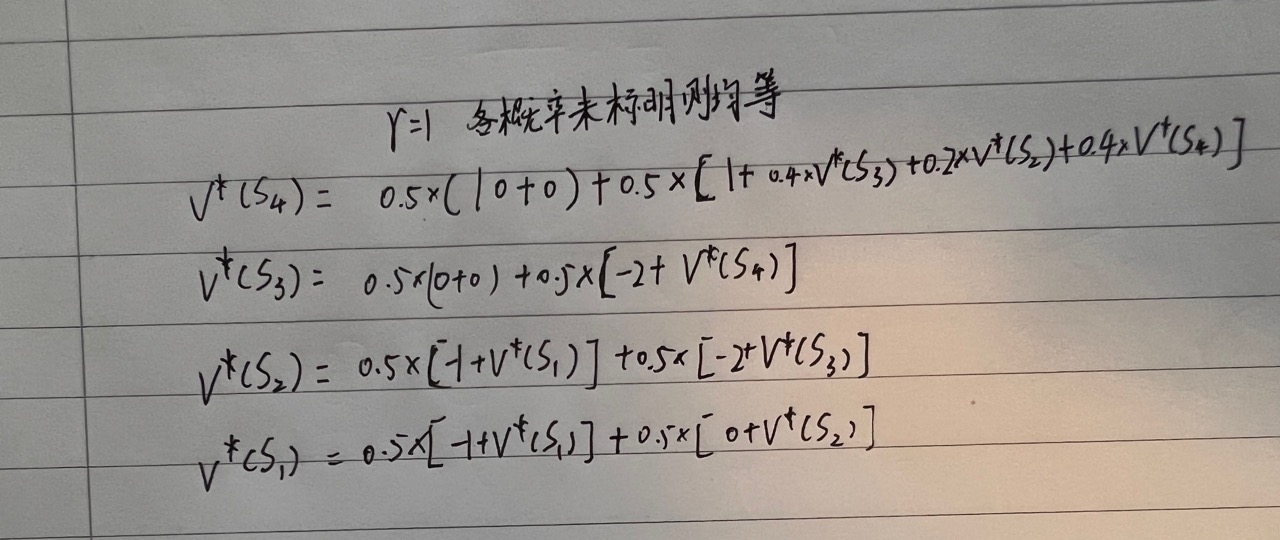 γ=1 各概率未标明则均等
V*(S₄) = 0.5×(10+0)+0.5×[1+0.4×V*(S₃)+0.2×V*(S₂)+0.4×V*(S₄)]
V*(S₃) = 0.5×(0+0)+0.5×[-2+V*(S₄)]
V*(S₂) = 0.5×[-1+V*(S₁)]+0.5×[-2+V*(S₃)]
V*(S₁) = 0.5×[-1+V*(S₁)]+0.5×[0+V*(S₂)]